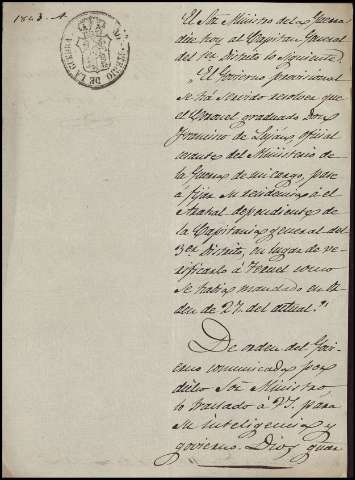 1843.
MINISTERIO DE LA GUERRA
El Sor. Ministro de la Guerra
dice hoy al Capitan General
del 1er. Distrito lo siguiente:
"El Gobierno provisional
se ha servido resolver que
el Coronel graduado Don
Francisco de Luján, oficial
del Ministerio de
la Guerra de mi cargo, pase
á fijar su residencia á el
dependiente de
la Capitania general del
3er. Distrito, en lugar de ve-
rificarlo á Teruel como
se habia mandado en or-
den de 27 del actual."
De orden del Gobi-
erno comunicada por
dicho Sor. Ministro
lo traslado á V. para
su inteligencia y
gobierno. Dios guar